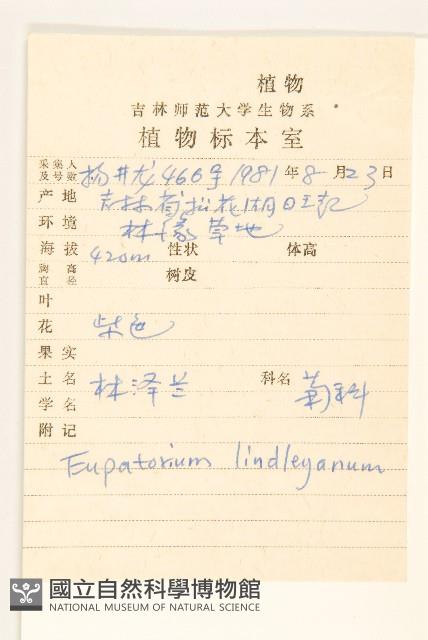 植物
吉林师范大学生物系
植物标本室
采集人及号数 杨井龙 466号 1981年8月23日
产地 吉林省松花湖
环境 林缘草地
海拔 420m 性状 体高
胸高直径 树皮
叶
花 柴色
果实
土名 林泽兰 科名 菊科
学名
附记
Eupatorium lindleyanum
國立自然科學博物館
NATIONAL MUSEUM OF NATURAL SCIENCE